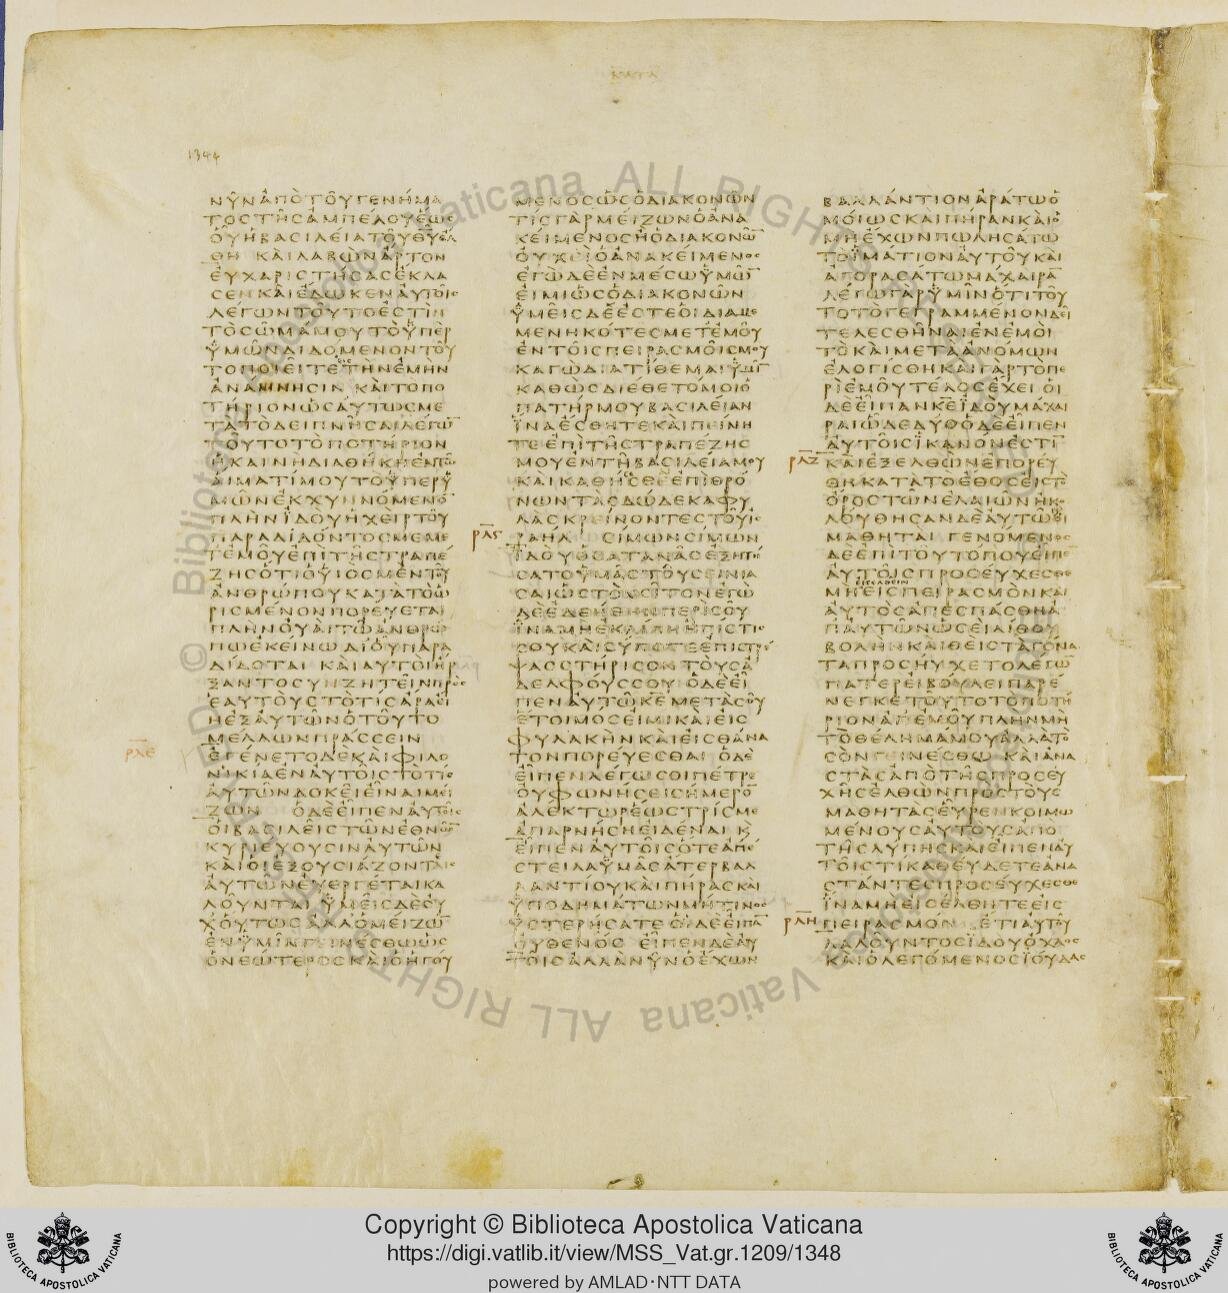 ΚΑΤΑ
1344
ΝΥΝΑΠΟΤΟΥΓΕΝΗΜΑ
ΤΟΣΤΗΣΑΜΠΕΛΟΥΕΩΣ
ΟΥΗΒΑΣΙΛΕΙΑΤΟΥΘ̅Υ̅ΕΛ
ΘΗ ΚΑΙΛΑΒΩΝΑΡΤΟΝ
ΕΥΧΑΡΙΣΤΗΣΑΣΕΚΛΑ
ΣΕΝΚΑΙΕΔΩΚΕΝΑΥΤΟΙΣ
ΛΕΓΩΝΤΟΥΤΟΕΣΤΙΝ
ΤΟΣΩΜΑΜΟΥΤΟΥΠΕΡ
ΥΜΩΝΔΙΔΟΜΕΝΟΝΤΟΥ
ΤΟΠΟΙΕΙΤΕΕΙΣΤΗΝΕΜΗΝ
ΑΝΑΜΝΗΣΙΝ ΚΑΙΤΟΠΟ
ΤΗΡΙΟΝΩΣΑΥΤΩΣΜΕ
ΤΑΤΟΔΕΙΠΝΗΣΑΙΛΕΓΩ̅
ΤΟΥΤΟΤΟΠΟΤΗΡΙΟΝ
ΗΚΑΙΝΗΔΙΑΘΗΚΗΕΝΤΩ
ΑΙΜΑΤΙΜΟΥΤΟΥΠΕΡΥ
ΜΩΝΕΚΧΥΝΝΟΜΕΝΟ̅
ΠΛΗΝΙΔΟΥΗΧΕΙΡΤΟΥ
ΠΑΡΑΔΙΔΟΝΤΟΣΜΕΜΕ
ΤΕΜΟΥΕΠΙΤΗΣΤΡΑΠΕ
ΖΗΣΟΤΙΟΥΙΟΣΜΕΝΤΟΥ
ΑΝΘΡΩΠΟΥΚΑΤΑΤΟΩ
ΡΙΣΜΕΝΟΝΠΟΡΕΥΕΤΑΙ
ΠΛΗΝΟΥΑΙΤΩΑΝΘΡΩ
ΠΩΕΚΕΙΝΩΔΙΟΥΠΑΡΑ
ΔΙΔΟΤΑΙ ΚΑΙΑΥΤΟΙΗΡ
ΞΑΝΤΟΣΥΝΖΗΤΕΙΝΠΡΟΣ
ΕΑΥΤΟΥΣΤΟΤΙΣΑΡΑΕΙ
ΗΕΞΑΥΤΩΝΟΤΟΥΤΟ
ΜΕΛΛΩΝΠΡΑΣΣΕΙΝ
ΡΛΕ ΕΓΕΝΕΤΟΔΕΚΑΙΦΙΛΟ
ΝΙΚΙΑΕΝΑΥΤΟΙΣΤΟΤΙΣ
ΑΥΤΩΝΔΟΚΕΙΕΙΝΑΙΜΕΙ
ΖΩΝ ΟΔΕΕΙΠΕΝΑΥΤΟΙΣ
ΟΙΒΑΣΙΛΕΙΣΤΩΝΕΘΝΩ̅
ΚΥΡΙΕΥΟΥΣΙΝΑΥΤΩΝ
ΚΑΙΟΙΕΞΟΥΣΙΑΖΟΝΤΕΣ
ΑΥΤΩΝΕΥΕΡΓΕΤΑΙΚΑ
ΛΟΥΝΤΑΙ ΥΜΕΙΣΔΕΟΥ
ΧΟΥΤΩΣΑΛΛΟΜΕΙΖΩ̅
ΕΝΥΜΙΝΓΕΙΝΕΣΘΩΩΣ
ΟΝΕΩΤΕΡΟΣΚΑΙΟΗΓΟΥ
ΜΕΝΟΣΩΣΟΔΙΑΚΟΝΩΝ
ΤΙΣΓΑΡΜΕΙΖΩΝΟΑΝΑ
ΚΕΙΜΕΝΟΣΗΟΔΙΑΚΟΝΩ̅
ΟΥΧΕΙΟΑΝΑΚΕΙΜΕΝΟΣ
ΕΓΩΔΕΕΝΜΕΣΩΥΜΩ̅
ΕΙΜΙΩΣΟΔΙΑΚΟΝΩΝ
ΥΜΕΙΣΔΕΕΣΤΕΟΙΔΙΑΜΕ
ΜΕΝΗΚΟΤΕΣΜΕΤΕΜΟΥ
ΕΝΤΟΙΣΠΕΙΡΑΣΜΟΙΣΜΟΥ
ΚΑΓΩΔΙΑΤΙΘΕΜΑΙΥΜΙ̅
ΚΑΘΩΣΔΙΕΘΕΤΟΜΟΙΟ
ΠΑΤΗΡΜΟΥΒΑΣΙΛΕΙΑΝ
ΙΝΑΕΣΘΗΤΕΚΑΙΠΕΙΝΗ
ΤΕΕΠΙΤΗΣΤΡΑΠΕΖΗΣ
ΜΟΥΕΝΤΗΒΑΣΙΛΕΙΑΜΟΥ
ΚΑΙΚΑΘΗΣΘΕΕΠΙΘΡΟ
ΝΩΝΤΑΣΔΩΔΕΚΑΦΥ
ΛΑΣΚΡΕΙΝΟΝΤΕΣΤΟΥΙΣ
ΡΛϚ ΡΑΗΛ ΣΙΜΩΝΣΙΜΩΝ
ΙΔΟΥΟΣΑΤΑΝΑΣΕΞΗΤΗ
ΣΑΤΟΥΜΑΣΤΟΥΣΕΙΝΙΑ
ΣΑΙΩΣΤΟΝΣΙΤΟΝΕΓΩ
ΔΕΕΔΕΗΘΗΝΠΕΡΙΣΟΥ
ΙΝΑΜΗΕΚΛΙΠΗΗΠΙΣΤΙΣ
ΣΟΥΚΑΙΣΥΠΟΤΕΕΠΙΣΤΡΕ
ΨΑΣΣΤΗΡΙΣΟΝΤΟΥΣΑ
ΔΕΛΦΟΥΣΣΟΥ ΟΔΕΕΙ
ΠΕΝΑΥΤΩΚ̅Ε̅ΜΕΤΑΣΟΥ
ΕΤΟΙΜΟΣΕΙΜΙΚΑΙΕΙΣ
ΦΥΛΑΚΗΝΚΑΙΕΙΣΘΑΝΑ
ΤΟΝΠΟΡΕΥΕΣΘΑΙ ΟΔΕ
ΕΙΠΕΝΛΕΓΩΣΟΙΠΕΤΡΕ
ΟΥΦΩΝΗΣΕΙΣΗΜΕΡΟ̅
ΑΛΕΚΤΩΡΕΩΣΤΡΙΣΜΕ
ΑΠΑΡΝΗΣΗΕΙΔΕΝΑΙ Κ
ΕΙΠΕΝΑΥΤΟΙΣΟΤΕΑΠΕ
ΣΤΕΙΛΑΥΜΑΣΑΤΕΡΒΑΛ
ΛΑΝΤΙΟΥΚΑΙΠΗΡΑΣΚΑΙ
ΥΠΟΔΗΜΑΤΩΝΜΗΤΙΝΟΣ
ΥΣΤΕΡΗΣΑΤΕΟΙΔΕΕΙΠΑ̅
ΟΥΘΕΝΟΣ ΕΙΠΕΝΔΕΑΥ
ΤΟΙΣΑΛΛΑΝΥΝΟΕΧΩΝ
ΒΑΛΛΑΝΤΙΟΝΑΡΑΤΩΟ
ΜΟΙΩΣΚΑΙΠΗΡΑΝΚΑΙΟ
ΜΗΕΧΩΝΠΩΛΗΣΑΤΩ
ΤΟΙΜΑΤΙΟΝΑΥΤΟΥΚΑΙ
ΑΓΟΡΑΣΑΤΩΜΑΧΑΙΡΑ̅
ΛΕΓΩΓΑΡΥΜΙΝΟΤΙΤΟΥ
ΤΟΤΟΓΕΓΡΑΜΜΕΝΟΝΔΕΙ
ΤΕΛΕΣΘΗΝΑΙΕΝΕΜΟΙ
ΤΟΚΑΙΜΕΤΑΑΝΟΜΩΝ
ΕΛΟΓΙΣΘΗΚΑΙΓΑΡΤΟΠΕ
ΡΙΕΜΟΥΤΕΛΟΣΕΧΕΙ ΟΙ
ΔΕΕΙΠΑΝΚ̅Ε̅ΙΔΟΥΜΑΧΑΙ
ΡΑΙΩΔΕΔΥΟΟΔΕΕΙΠΕΝ
ΑΥΤΟΙΣΙΚΑΝΟΝΕΣΤΙ̅
ΡΛΖ ΚΑΙΕΞΕΛΘΩΝΕΠΟΡΕΥ
ΘΗΚΑΤΑΤΟΕΘΟΣΕΙΣΤΟ
ΟΡΟΣΤΩΝΕΛΑΙΩΝΗΚΟ
ΛΟΥΘΗΣΑΝΔΕΑΥΤΩΟΙ
ΜΑΘΗΤΑΙ ΓΕΝΟΜΕΝΟΣ
ΔΕΕΠΙΤΟΥΤΟΠΟΥΕΙΠΕ
ΑΥΤΟΙΣΠΡΟΣΕΥΧΕΣΘΕ
ΕΙΣΕΛΘΕΙΝ
ΜΗΕΙΣΠΕΙΡΑΣΜΟΝΚΑΙ
ΑΥΤΟΣΑΠΕΣΠΑΣΘΗΑ
ΠΑΥΤΩΝΩΣΕΙΛΙΘΟΥ
ΒΟΛΗΝΚΑΙΘΕΙΣΤΑΓΟΝΑ
ΤΑΠΡΟΣΗΥΧΕΤΟΛΕΓΩ̅
ΠΑΤΕΡΕΙΒΟΥΛΕΙΠΑΡΕ
ΝΕΓΚΕΤΟΥΤΟΤΟΠΟΤΗ
ΡΙΟΝΑΠΕΜΟΥΠΛΗΝΜΗ
ΤΟΘΕΛΗΜΑΜΟΥΑΛΛΑΤΟ
ΣΟΝΓΕΙΝΕΣΘΩ ΚΑΙΑΝΑ
ΣΤΑΣΑΠΟΤΗΣΠΡΟΣΕΥ
ΧΗΣΕΛΘΩΝΠΡΟΣΤΟΥΣ
ΜΑΘΗΤΑΣΕΥΡΕΝΚΟΙΜΩ
ΜΕΝΟΥΣΑΥΤΟΥΣΑΠΟ
ΤΗΣΛΥΠΗΣΚΑΙΕΙΠΕΝΑΥ
ΤΟΙΣΤΙΚΑΘΕΥΔΕΤΕΑΝΑ
ΣΤΑΝΤΕΣΠΡΟΣΕΥΧΕΣΘΕ
ΙΝΑΜΗΕΙΣΕΛΘΗΤΕΕΙΣ
ΡΛΗ ΠΕΙΡΑΣΜΟΝ ΕΤΙΑΥΤΟΥ
ΛΑΛΟΥΝΤΟΣΙΔΟΥΟΧΛΟΣ
ΚΑΙΟΛΕΓΟΜΕΝΟΣΙΟΥΔΑΣ
© Biblioteca Apostolica Vaticana ALL RIGHTS RESERVED
Copyright © Biblioteca Apostolica Vaticana
https://digi.vatlib.it/view/MSS_Vat.gr.1209/1348
powered by AMLAD·NTT DATA
BIBLIOTECA APOSTOLICA VATICANA
BIBLIOTECA APOSTOLICA VATICANA